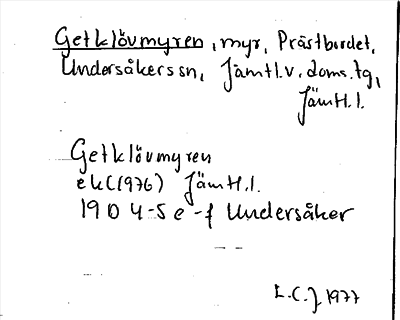 Getklövmyren, myr, Prästbordet,
Undersåkers sn, Jämtl. v. doms. tg,
Jämtl. l.
Getklövmyren
ek (1976) Jämtl. l.
19 D 4-5 e-f Undersåker
L.C.J. 1977